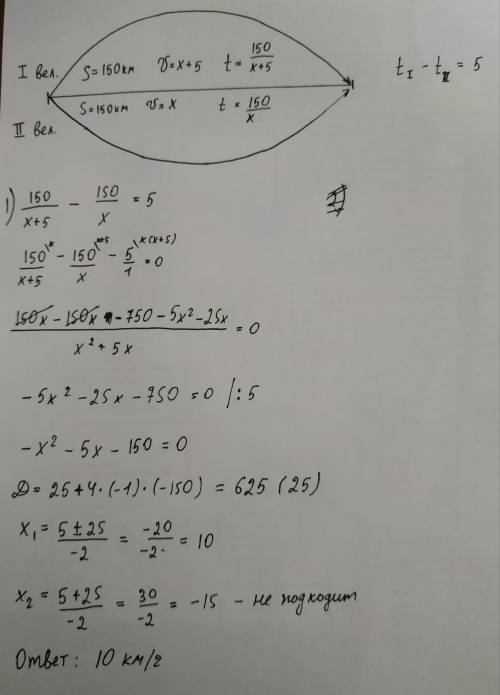 I вел. S=150км v=x+5 t=150/(x+5) t_I - t_II = 5
II вел. S=150км v=x t=150/x
1) 150/(x+5) - 150/x = 5
150\x/(x+5) - 150\x+5/x - 5\x(x+5)/1 = 0
(150x - 150x - 750 - 5x² - 25x)/(x² + 5x) = 0
-5x² - 25x - 750 = 0 /:5
-x² - 5x - 150 = 0
D = 25+4·(-1)·(-150) = 625 (25)
x₁ = (5±25)/-2 = -20/-2· = 10
x₂ = (5+25)/-2 = 30/-2 = -15 - не подходит
Ответ: 10 км/ч